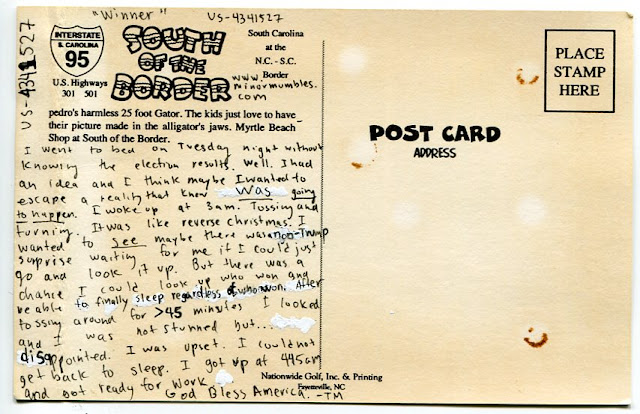 "Winner"
US-4341527
US-4341527
INTERSTATE
S. CAROLINA
95
U.S. Highways
301 501
SOUTH
OF THE
BORDER
South Carolina
at the
N.C. - S.C.
Border
www.
minormumbles.
com
pedro's harmless 25 foot Gator. The kids just love to have
their picture made in the alligator's jaws. Myrtle Beach
Shop at South of the Border.
I went to bed on Tuesday night without
knowing the election results. Well. I had
an idea and I think maybe I wanted to
escape a reality that knew was going
to happen. I woke up at 3am. Tossing and
turning. It was like reverse Christmas. I
wanted to see maybe there was a non-Trump
surprise waiting for me if I could just
go and look it up. But there was a
chance I could look up who won and
be able to finally sleep regardless of who won. After
tossing around for >45 minutes I looked
and I was not stunned but...
disappointed. I was upset. I could not
get back to sleep. I got up at 445am
and got ready for work.
God Bless America. -TM
PLACE
STAMP
HERE
POST CARD
ADDRESS
Nationwide Golf, Inc. & Printing
Fayetteville, NC